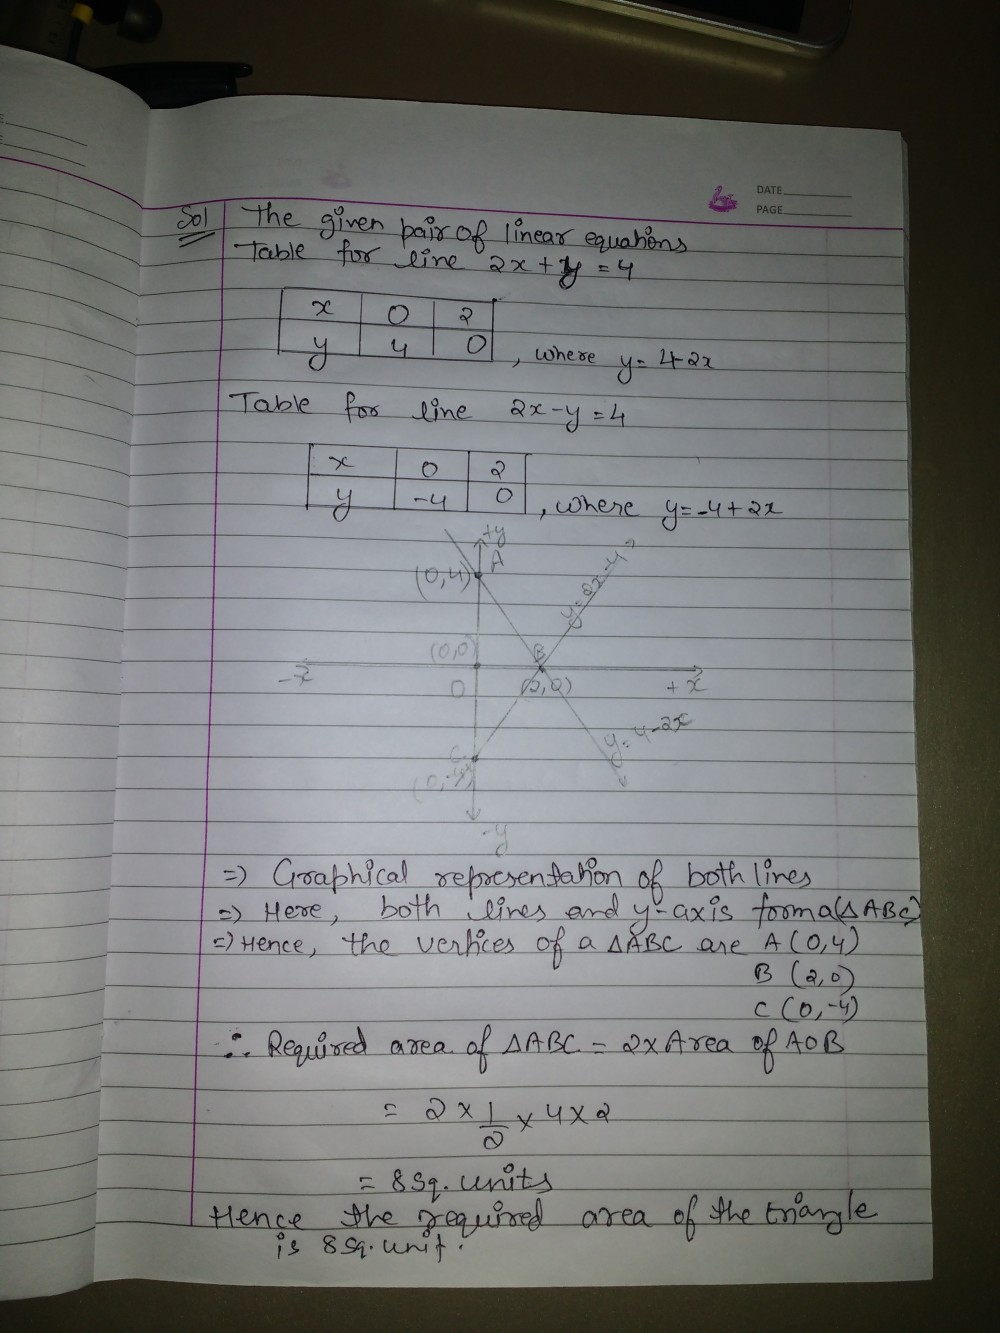 DATE
PAGE
Sol The given pair of linear equations
Table for line 2x + y = 4
x 0 2
y 4 0 , where y = 4-2x
Table for line 2x-y=4
x 0 2
y -4 0 , where y=-4+2x
+y
A
(0,4)
y=2x-4
(0,0)
B
-x
O
(2,0)
+x
y=4-2x
C
(0,-4)
-y
=) Graphical representation of both lines
=) Here, both lines and y-axis form a(△ABC)
=) Hence, the vertices of a △ABC are A(0,4)
B (2,0)
C (0,-4)
∴ Required area of △ABC = 2xArea of AOB
= 2 × 1/2 × 4 × 2
= 8 Sq. units
Hence the required area of the triangle
is 8 sq. unit.